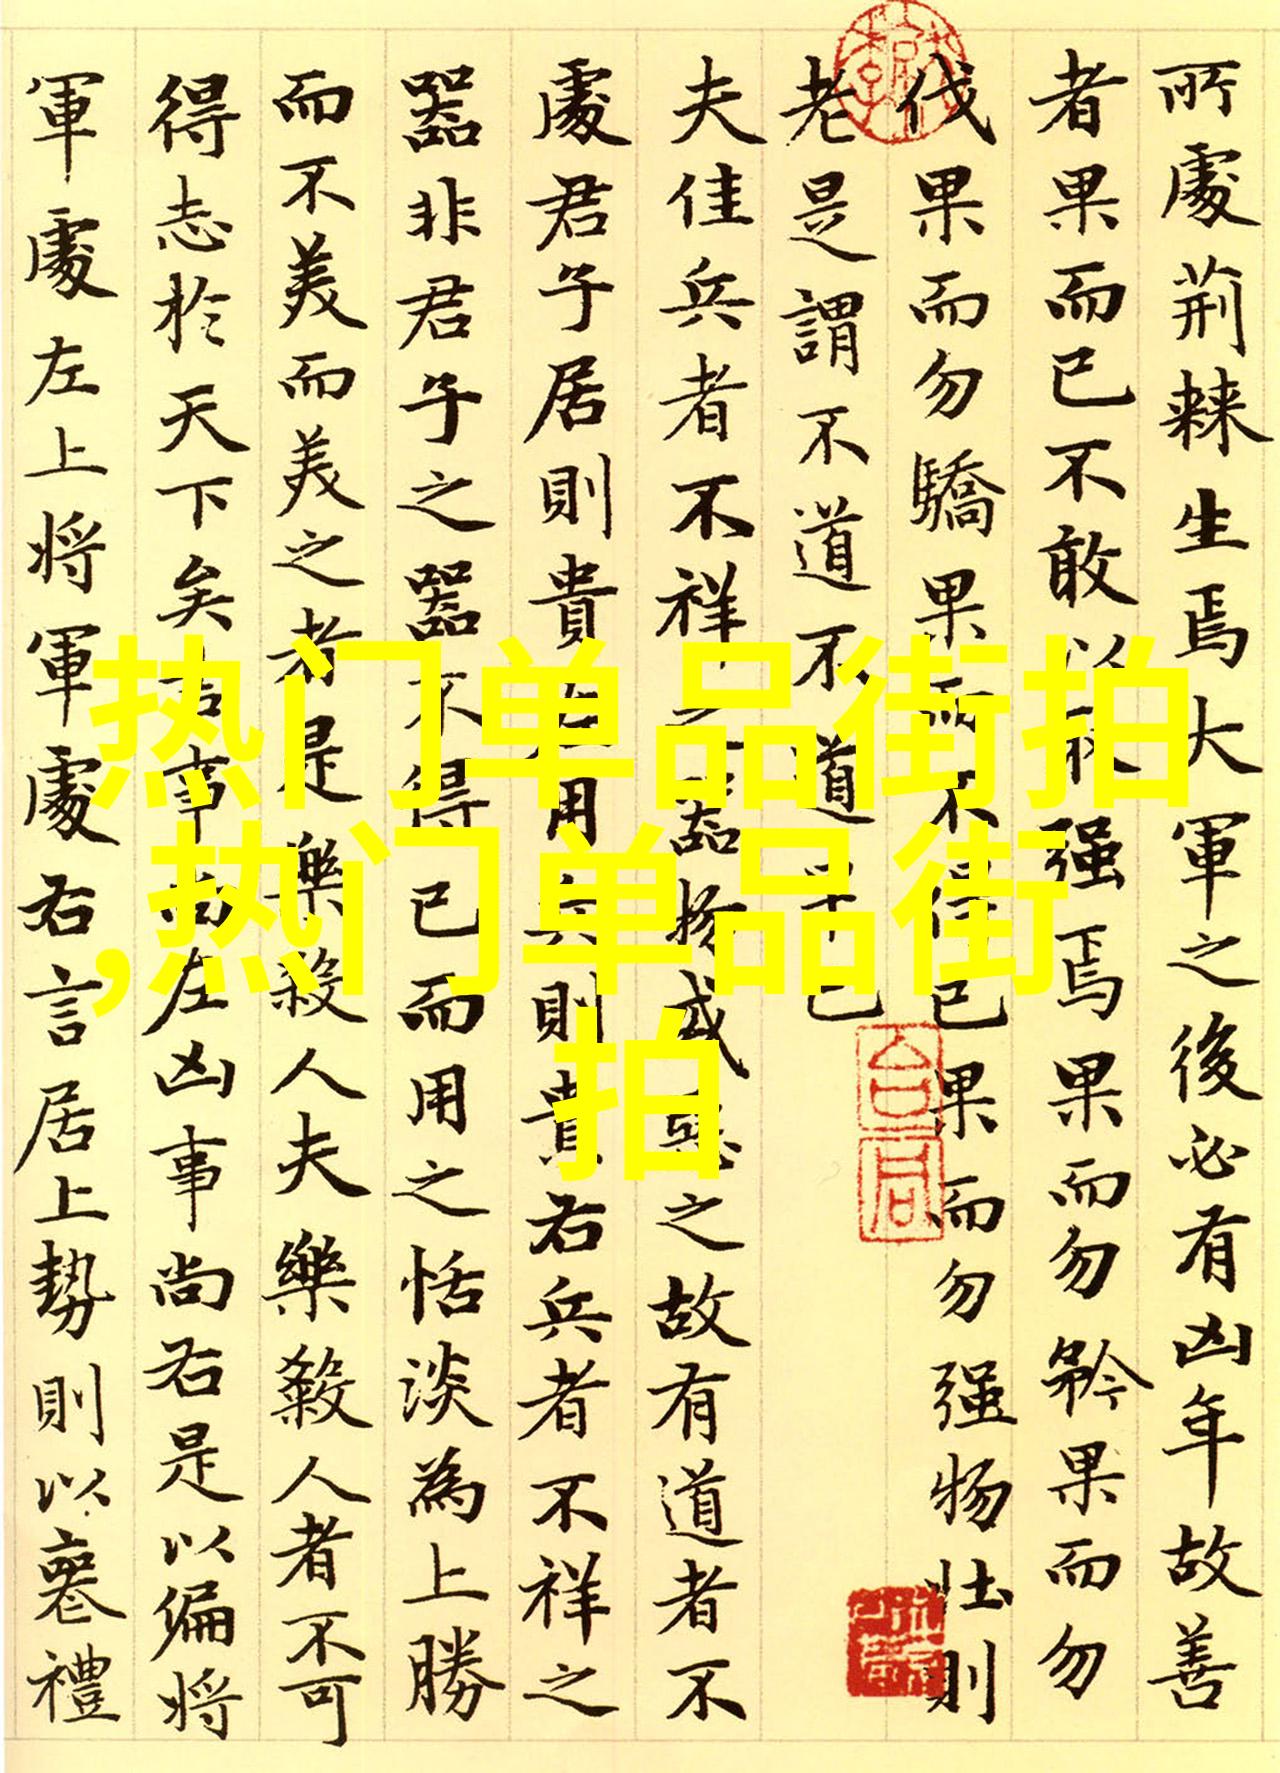 所處荆棘生焉大軍之後必有凶年故善
者果而已不敢以取强焉果而勿矜果而勿
伐果而勿驕果而不得已果而勿强物壯則
老是謂不道不道早已
夫佳兵者不祥之器物或惡之故有道者不
處君子居則貴左用兵則貴右兵者不祥之
器非君子之器不得已而用之恬淡為上勝
而不美而美之者是樂殺人夫樂殺人者不可
得志於天下矣吉事尚左凶事尚右是以偏將
軍處左上將軍處右言居上勢則以喪禮
热门单品街拍
,热门单品街
拍